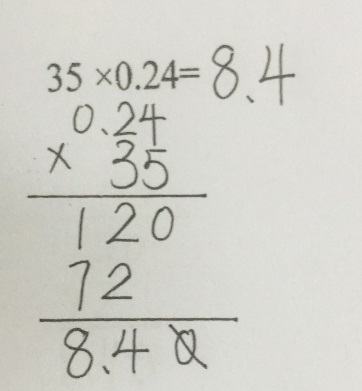 35 ×0.24= 8.4
0.24
× 35
120
72
8.40